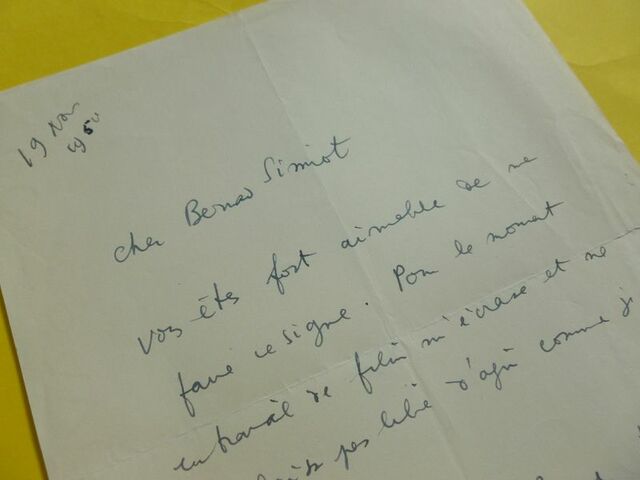 19 Nov
1950
cher Bernard Simiot
vous êtes fort aimable de me
faire ce signe. Pour le moment
un travail de film m'écrase et ne
pas libre d'agir comme je